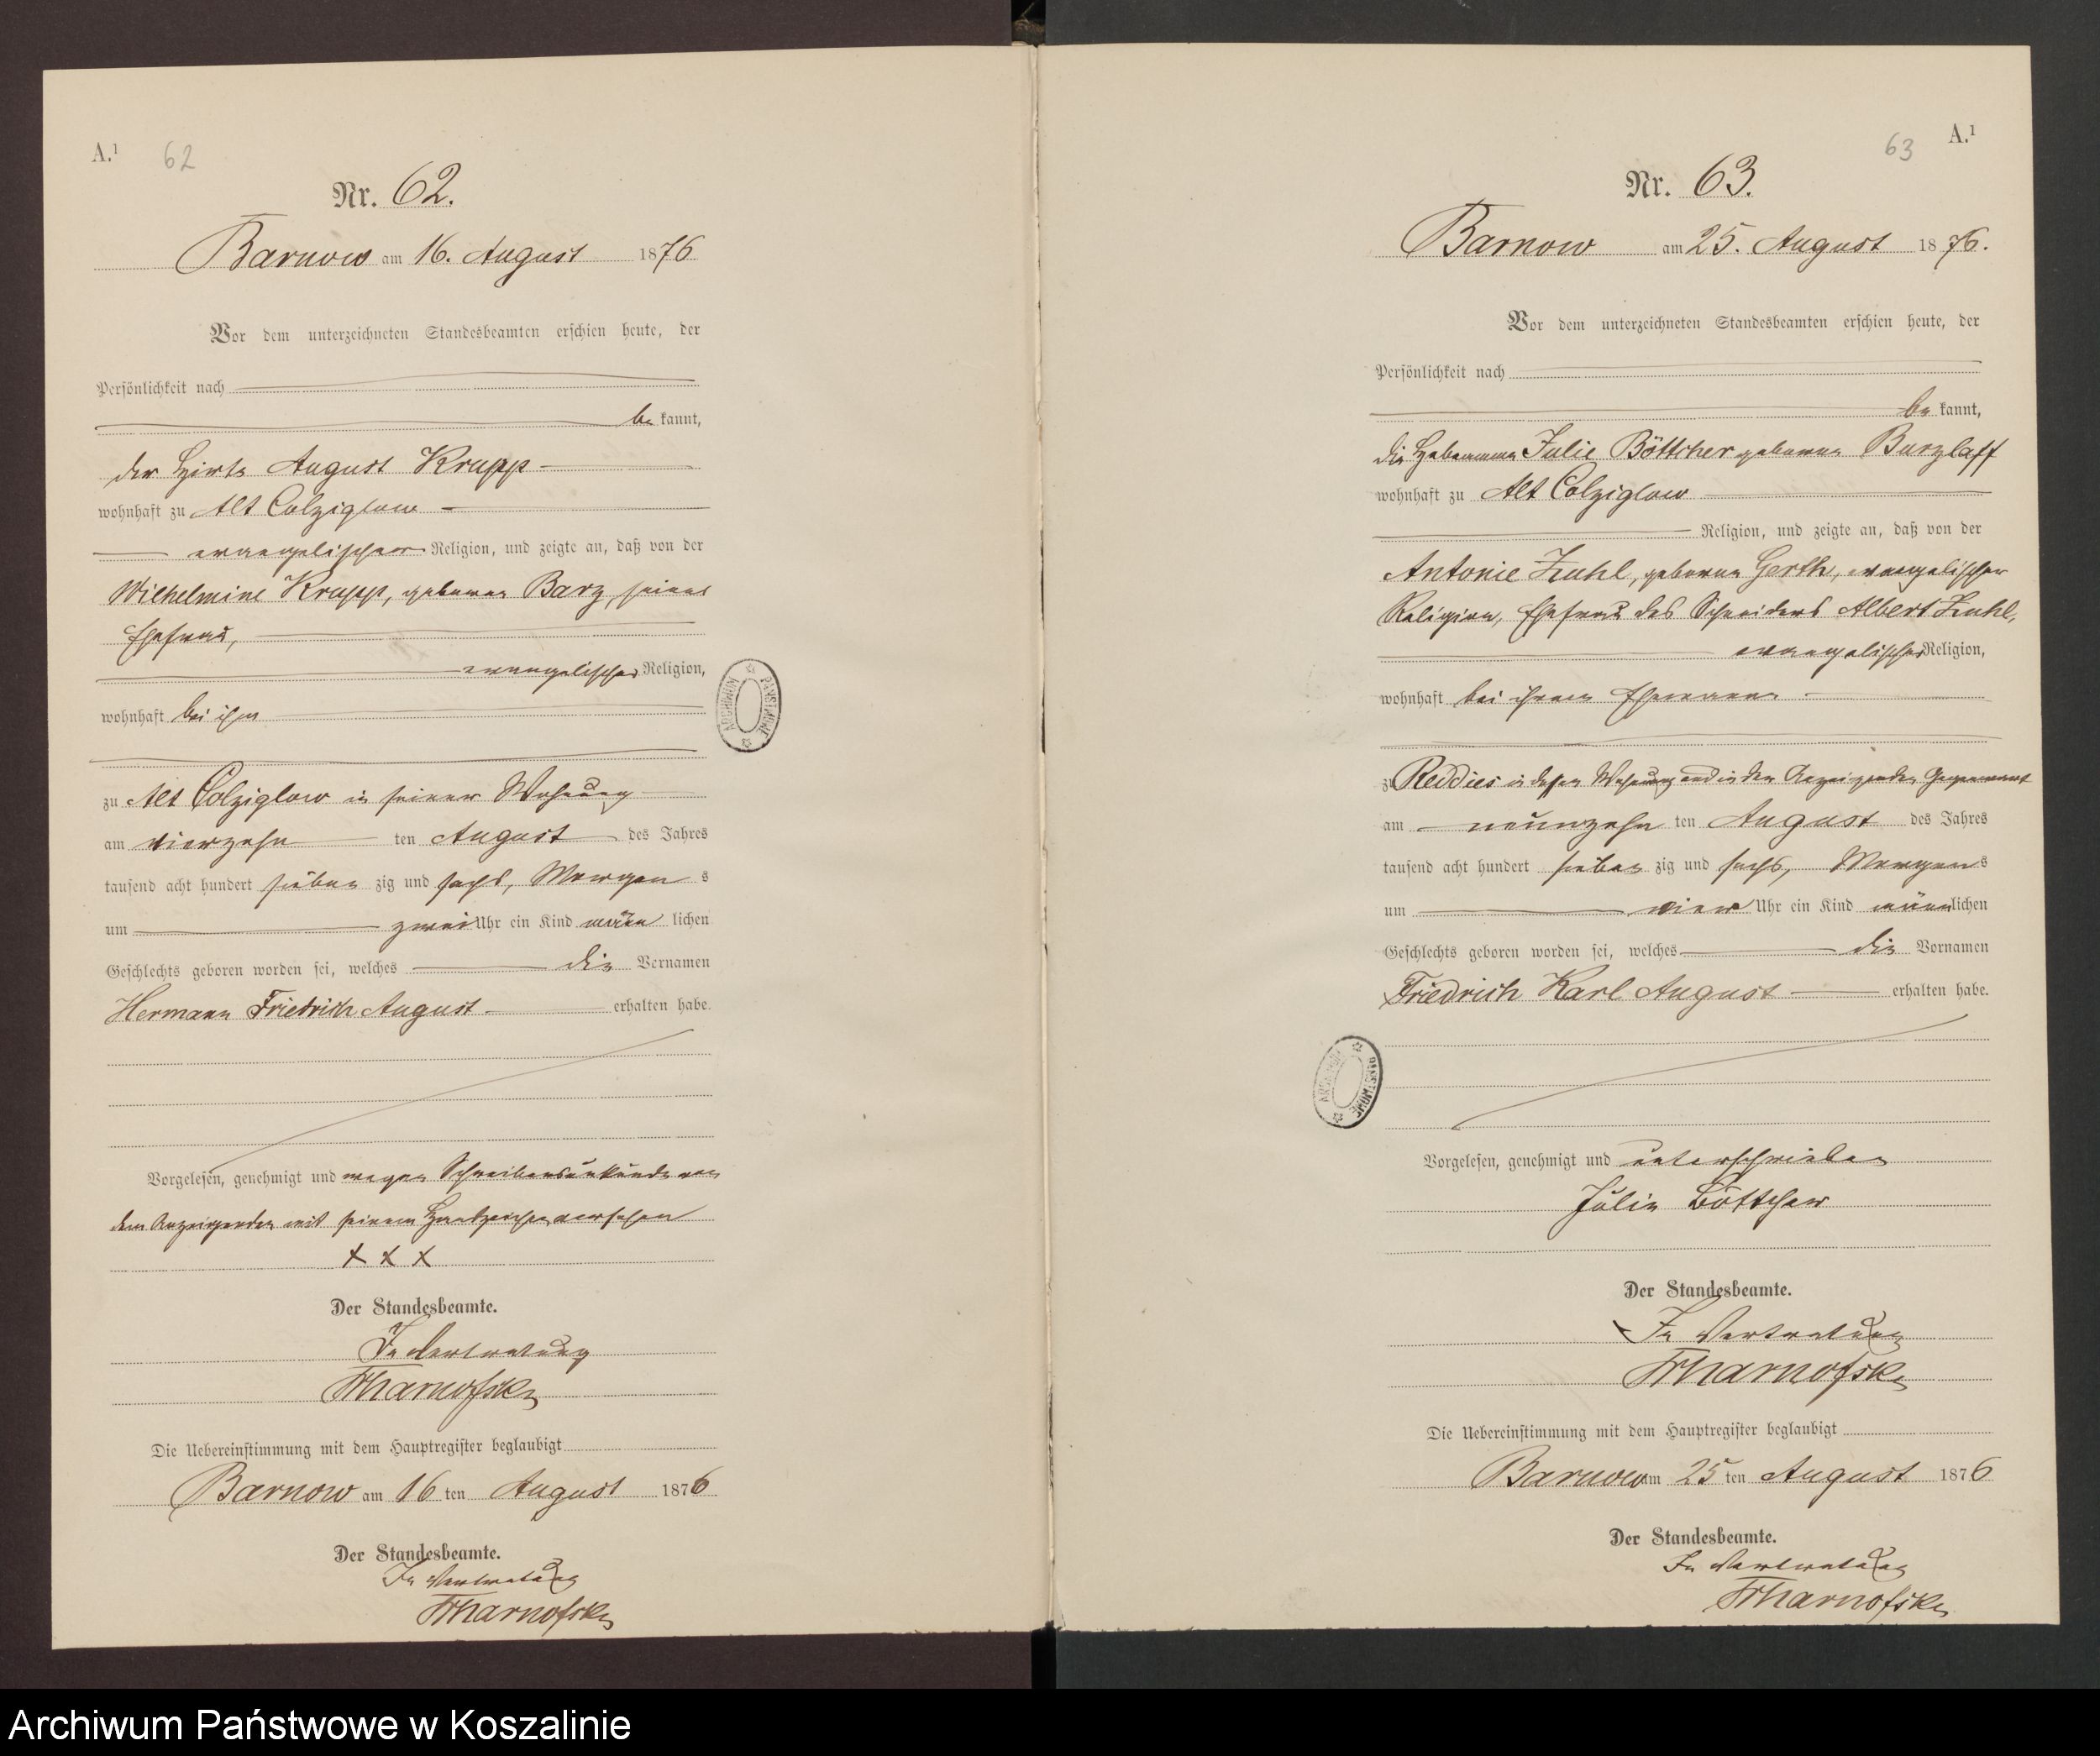 A.¹ 62
Nr. 62.
Barnow am 16. August 1876
Vor dem unterzeichneten Standesbeamten erschien heute, der
Persönlichkeit nach
be kannt,
der Hirte August Krapp
wohnhaft zu Alt Colziglow
evangelischer Religion, und zeigte an, daß von der
Wilhelmine Krapp, geborene Barz, seiner
Ehefrau,
evangelischer Religion,
wohnhaft bei ihm
zu Alt Colziglow in seiner Wohnung
am vierzehn ten August des Jahres
tausend acht hundert sieben zig und sechs, Morgen s
um zwei Uhr ein Kind männ lichen
Geschlechts geboren worden sei, welches die Vornamen
Hermann Friedrich August erhalten habe.
Vorgelesen, genehmigt und wegen Schreibensunkunde von
dem Anzeigenden mit seinem Handzeichen versehen
X X X
Der Standesbeamte.
In Vertretung
Die Uebereinstimmung mit dem Hauptregister beglaubigt
Barnow am 16 ten August 1876
Der Standesbeamte.
In Vertretung
ARCHIWUM PAŃSTWOWE
63 A.¹
Nr. 63.
Barnow am 25. August 1876.
Vor dem unterzeichneten Standesbeamten erschien heute, der
Persönlichkeit nach
be kannt,
die Hebamme Julie Böttcher geborene Burzlaff
wohnhaft zu Alt Colziglow
Religion, und zeigte an, daß von der
Antonie Zuhl, geborene Gerth, evangelischer
Religion, Ehefrau des Schneiders Albert Zuhl,
evangelischer Religion,
wohnhaft bei ihrem Ehemanne
zu Reddies in dessen Wohnung und in der Anzeigenden Gegenwart
am neunzehn ten August des Jahres
tausend acht hundert sieben zig und sechs, Morgen s
um vier Uhr ein Kind männ lichen
Geschlechts geboren worden sei, welches die Vornamen
Friedrich Karl August erhalten habe.
Vorgelesen, genehmigt und unterschrieben
Julie Böttcher
Der Standesbeamte.
In Vertretung
Die Uebereinstimmung mit dem Hauptregister beglaubigt
Barnow am 25 ten August 1876
Der Standesbeamte.
In Vertretung
ARCHIWUM PAŃSTWOWE
Archiwum Państwowe w Koszalinie